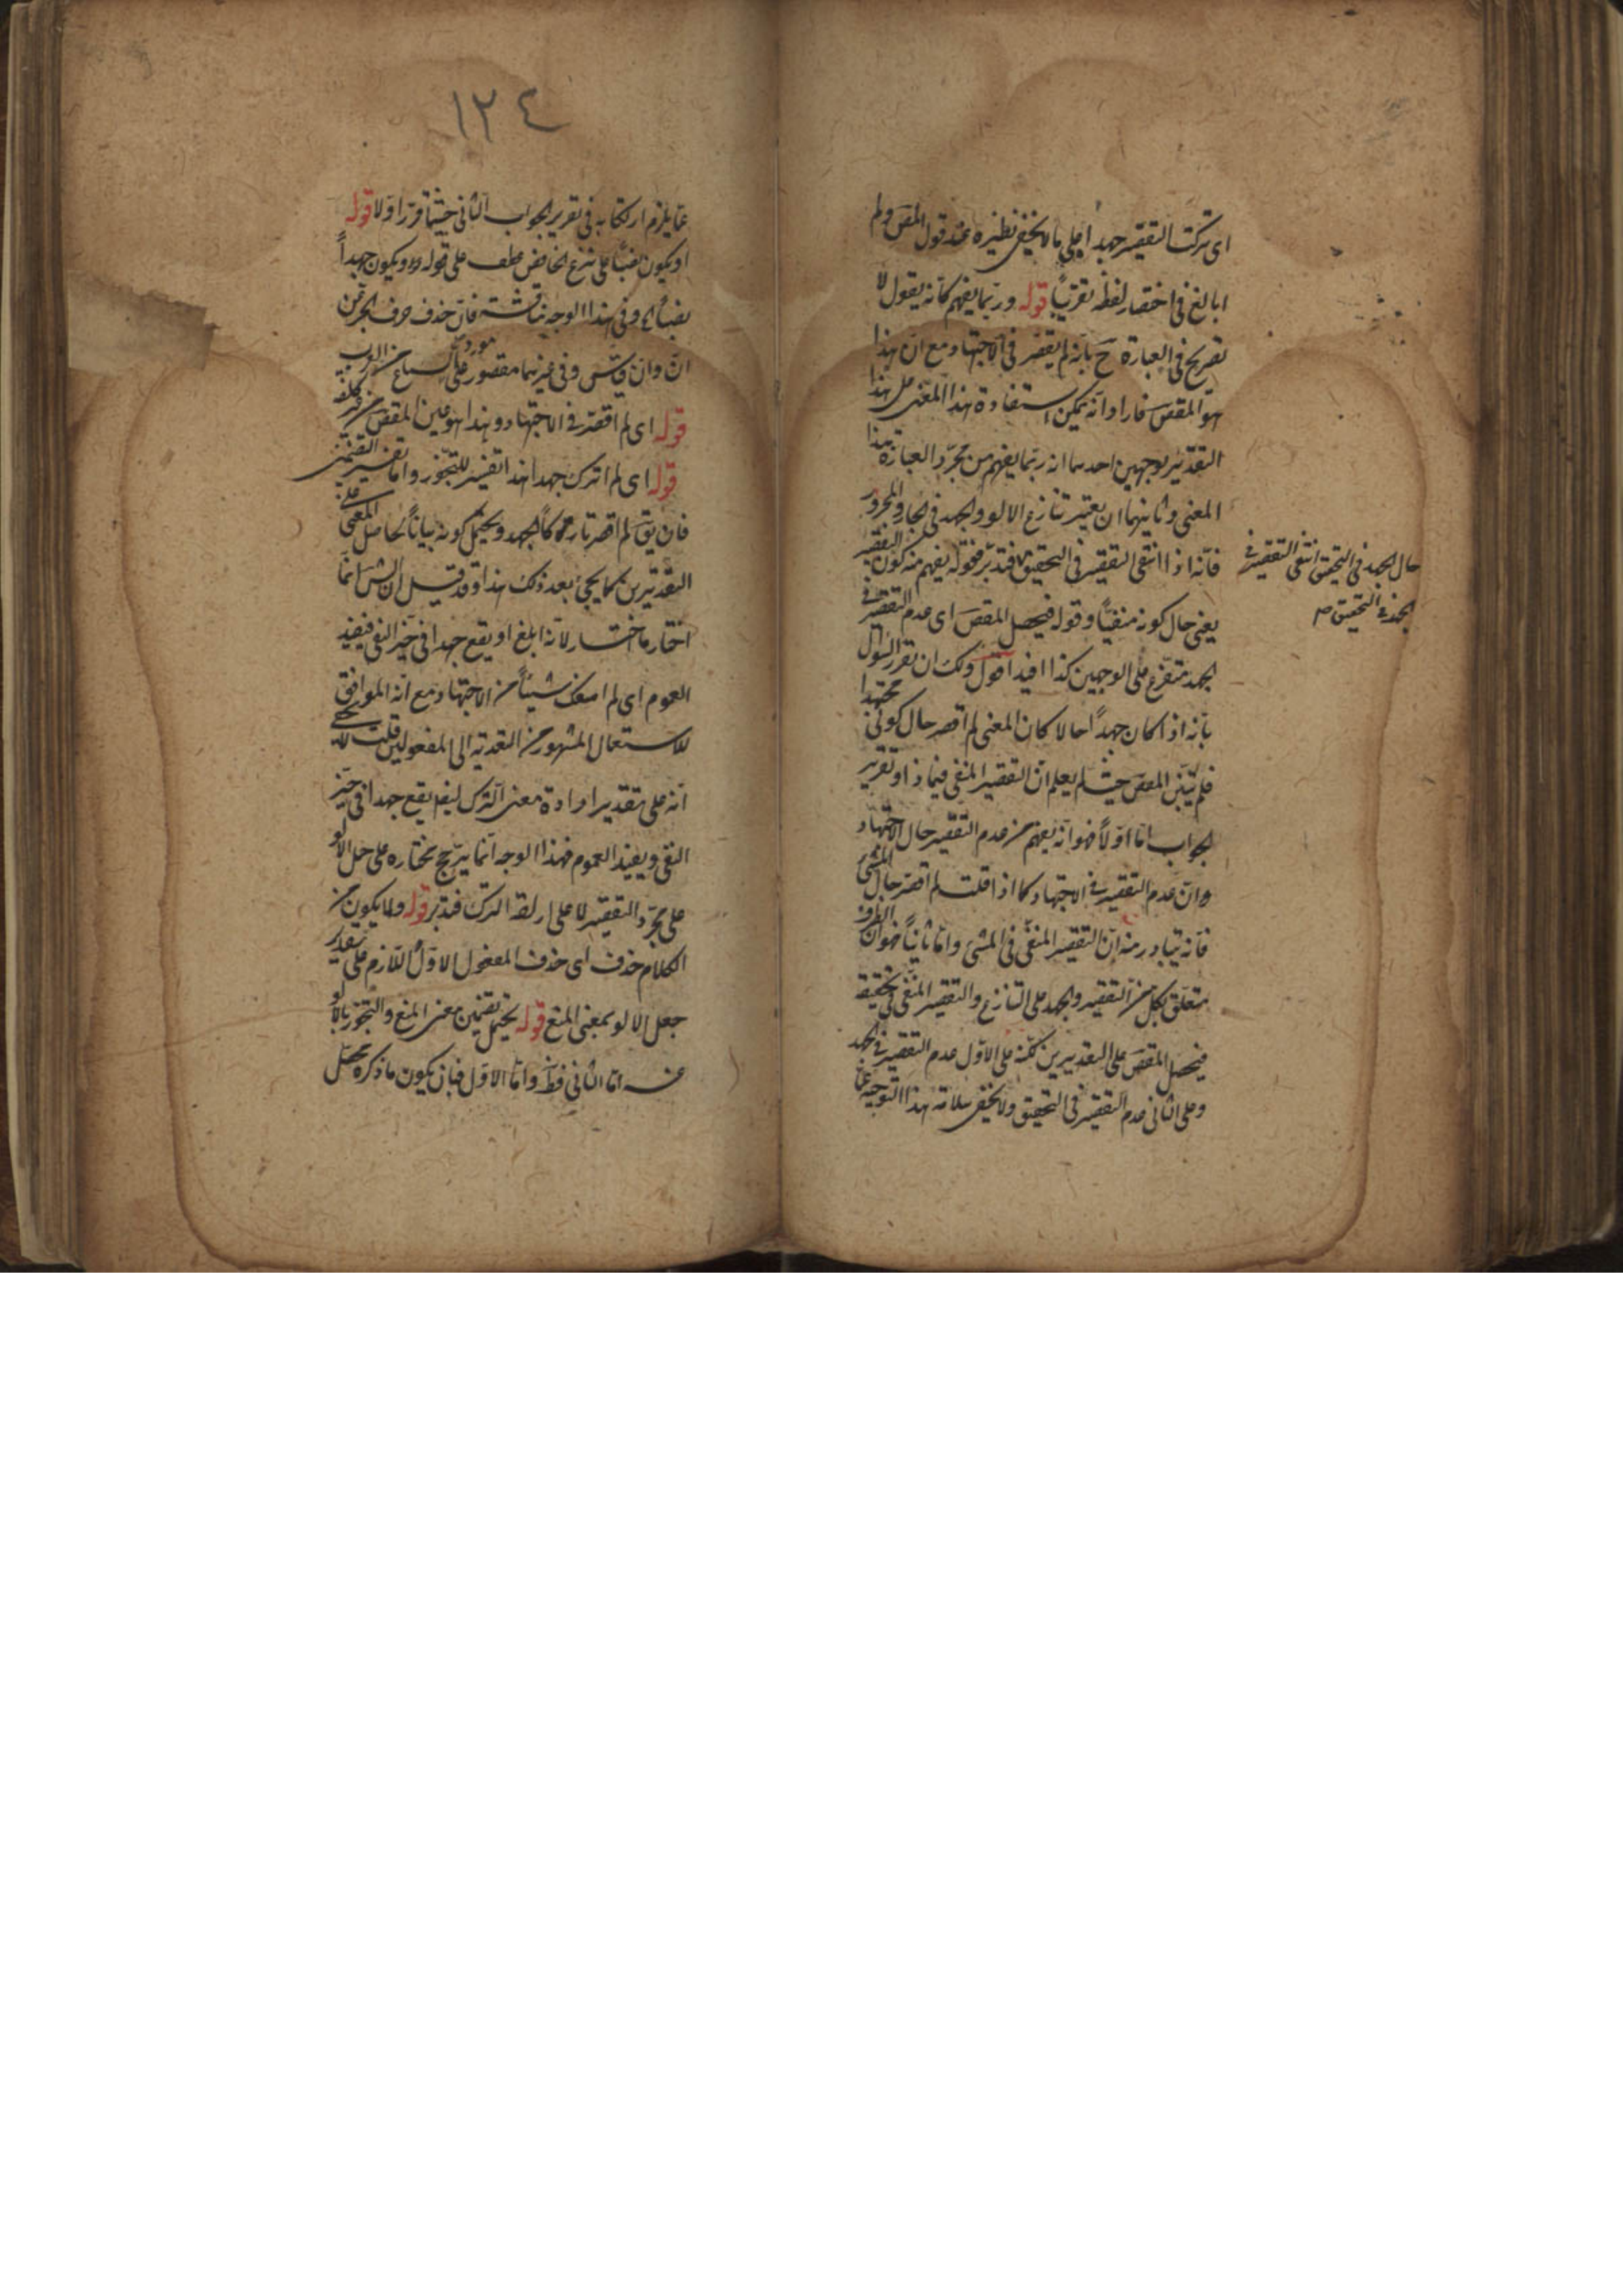 اى تركت التقصير جهدا على ما لا يخفى نظيره عند قول المقص ولم
ابالغ فى اختصار لفظه تقريبًا قوله وربما يفهم كانه يقول لا
تصريح فى العبارة ح بانه لم يقصر فى الاجتهاد مع ان هذا
هو المقص فاراد انه يمكن استفادة هذا المعنى على هذا
التقدير بوجهين احدهما انه ربما يفهم من مجرد العبارة هذا
المعنى وثانيهما ان يعتبر تنازع الالو والجهد فى الجار والمجرور
فانه اذا انتفى التقصير فى التحقيق فتدبر فقوله يفهم منه كون التقصير
يعنى حال كونه منفيًا وقوله فيحصل المقص اى عدم التقصير فى
الجهد متفرع على الوجهين كذا افيد اقول ولك ان تقرر السؤال
بانه اذا كان جهدًا حالا كان المعنى لم اقصر حال كونى مجتهدا
فلم يتبين المقص حيث لم يعلم ان التقصير المنفى فيما ذا وتقرير
الجواب اما اولًا فهو انه يفهم من عدم التقصير حال الاجتهاد
ان عدم التقصير فى الاجتهاد كما اذا قلت لم اقصر حال المشى
فانه يتبادر منه ان التقصير المنفى فى المشى واما ثانيًا فهو ان الظرف
متعلق بكل من التقصير والجهد على التنازع والتقصير المنفى فى تحقيقه
فيحصل المقص على التقديرين لكنه على الاول عدم التقصير فى الجهد
وعلى الثانى عدم التقصير فى التحقيق ولا يخفى سلامة هذا التوجيه عما
حال الجهد فى التحقيق انتفى التقصير فى
الجهد فى التحقيق صم
١٢٤
عما يلزم ارتكابه فى تقرير الجواب الثانى حيثما قرر اولا قوله
او يكون نصبًا على نزع الخافض عطف على قوله ويكون جهدًا
نصبًا وفى هذا الوجه مناقشة فان حذف حرف الجر عن
ان وان قياس وفى غيرهما مقصور على مورد السماع من العرب
قوله اى لم اقصر فى الاجتهاد وهذا هو عين المقص من غير كلفة
قوله اى لم اترك جهدا هذا تفسير للتجوز واما تفسير التضمين
فان يق لم اقصر تاركًا لجهد ويحتمل كونه بيانًا لحاصل المعنى على
التقديرين كما يجئ بعد ذلك هذا وقد قيل ان الش انما
اختار ما اختار لانه ابلغ او يقع جهدا فى حيز النفى فيفيد
العموم اى لم امنعك شيئًا من الاجتهاد مع انه الموافق
للاستعمال المشهور من التعدية الى المفعولين قلت لا يخفى
انه على تقدير ارادة معنى الترك ايضا يقع جهدا فى حيز
النفى ويفيد العموم فهذا الوجه انما يرجح مختاره على حمل الالو
على مجرد التقصير لا على ارادة الترك فتدبر قوله ولا يكون من
الكلام حذف اى حذف المفعول الاول اللازم على تقدير
جعل الالو بمعنى المنع قوله يحتمل تضمين معنى المنع والتجوز بالالو
عنه اما الثانى فظ واما الاول فبان يكون ما ذكره محصل